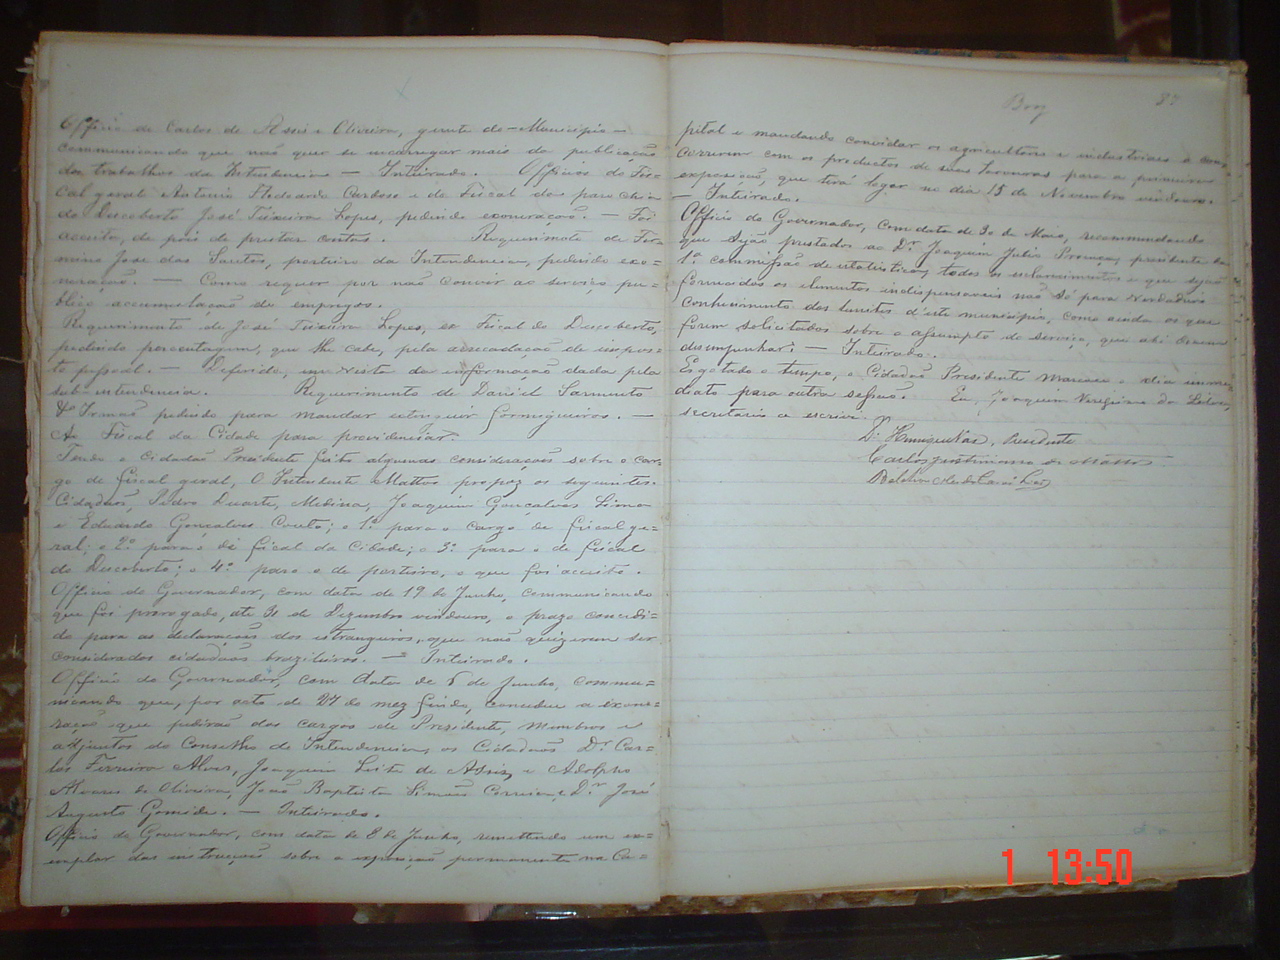 Officio de Carlos de Assis e Oliveira, gerente do - Municipio -
communicando que não quer se encarregar mais da publicação
dos trabalhos da Intendencia — Inteirado. Officios do Fis=
cal geral Antonio Theodardo Cardoso e do Fiscal da parochia
do Descoberto José Teixeira Lopes, pedindo exoneração. — Foi
acceita, de pois de prestar contas. Requerimento de Fir=
mino José dos Santos, porteiro da Intendencia, pedindo exo=
neração. — Como requer por não convir ao serviço pu=
blico accumulação de empregos.
Requerimento de José Teixeira Lopes, ex Fiscal do Descoberto,
pedindo porcentagem, que lhe cabe, pela arrecadação de impos=
to pessoal. — Deferido, em vista da informação dada pela
sub-intendencia. Requerimento de Daniel Sarmento
& Irmão pedindo para mandar extinguir formigueiros. —
Ao Fiscal da Cidade para providenciar.
Tendo o Cidadão Presidente feito algumas considerações sobre o car=
go de fiscal geral, O Intendente Mattos propoz os seguintes
Cidadãos, Pedro Duarte, Medina, Joaquim Gonçalves Lima
e Eduardo Gonçalves Couto; o 1º para o cargo de fiscal ge=
ral; o 2º para o de fiscal da Cidade; o 3º para o de fiscal
do Descoberto; o 4º para o de porteiro, o que foi acceito.
Officio do Governador, com data de 19 de Junho, communicando
que foi prorogado, até 31 de Dezembro vindouro, o prazo concedi=
do para as declarações dos estrangeiros, que não quizerem ser
considerados cidadãos brazileiros. — Inteirado.
Officio do Governador, com data de 6 de Junho, commu=
nicando que, por acto de 27 do mez findo, concedeu a exone=
ração que pedirão dos cargos de Presidente, membros e
adjuntos do Conselho de Intendencia, os Cidadãos Dr. Car=
los Ferreira Alves, Joaquim Leite de Assis, e Adolpho
Alvares de Oliveira, João Baptista Simões Correia e Dr. José
Augusto Gomide. — Inteirado.
Officio do Governador, com data de 8 de Junho, remettendo um ex=
emplar das instrucções sobre a exposição permanente na Ca=
87
pital e mandando convidar os agricultores e industriaes a con=
correrem com os productos de suas lavouras para a primeira
exposição, que terá logar no dia 15 de Novembro vindouro.
— Inteirado.
Officio do Governador, com data de 30 de Maio, recommendando
que sejão prestados ao Dr. Joaquim Julio Proença, presidente da
1ª commissão de estatistica, todos os esclarecimentos e que sejão
fornecidos os elementos indispensaveis não só para verdadeiro
conhecimento dos limites d'este municipio, como ainda os que
forem solicitados sobre o assumpto do serviço, que ahi
desempenhar. — Inteirado.
Esgotado o tempo, o Cidadão Presidente marcou o dia imme=
diato para outra sessão. Eu, Joaquim da Silva,
secretario o escrivi.
Dr. Henrique Vaz, Presidente
Carlos Justiniano de Mattos
1 13:50